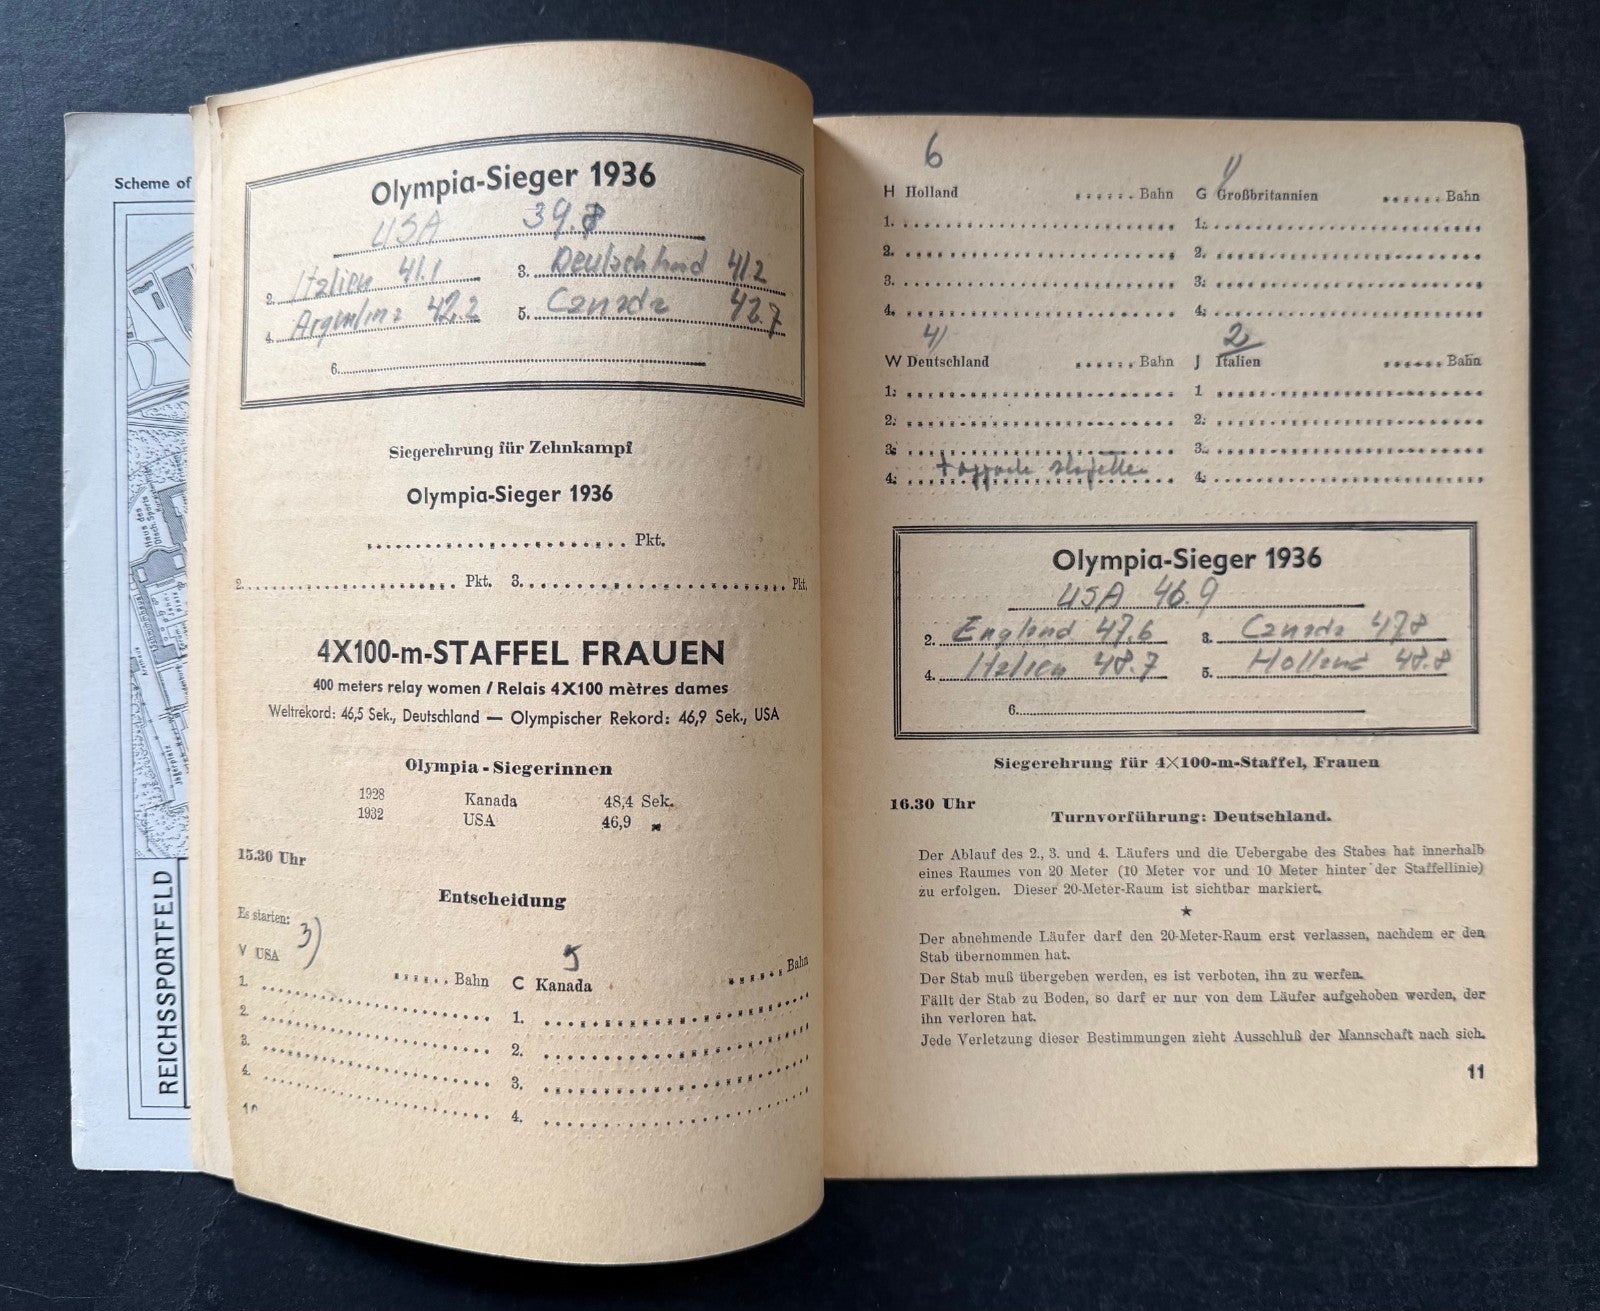 Scheme of
REICHSSPORTFELD
Olympia-Sieger 1936
USA 39.8
2. Italien 41.1 3. Deutschland 412
4. Argentina 42.2 5. Canada 42.7
6.
Siegerehrung für Zehnkampf
Olympia-Sieger 1936
Pkt.
2. Pkt. 3. Pkt.
4X100-m-STAFFEL FRAUEN
400 meters relay women / Relais 4X100 mètres dames
Weltrekord: 46,5 Sek., Deutschland — Olympischer Rekord: 46,9 Sek., USA
Olympia-Siegerinnen
1928 Kanada 48,4 Sek.
1932 USA 46,9 „
15.30 Uhr
Entscheidung
Es starten: 3)
5
V USA Bahn C Kanada Bahn
1. 1.
2. 2.
3. 3.
4. 4.
10
6
H Holland Bahn G Großbritannien Bahn
1. 1.
2. 2.
3. 3.
4. 4.
4) 2
W Deutschland Bahn J Italien Bahn
1. 1
2. 2.
3. 3.
4. 4.
Olympia-Sieger 1936
USA 46.9
2. England 47.6 3. Canada 478
4. Italien 48.7 5. Holland 48.8
6.
Siegerehrung für 4×100-m-Staffel, Frauen
16.30 Uhr
Turnvorführung: Deutschland.
Der Ablauf des 2., 3. und 4. Läufers und die Uebergabe des Stabes hat innerhalb
eines Raumes von 20 Meter (10 Meter vor und 10 Meter hinter der Staffellinie)
zu erfolgen. Dieser 20-Meter-Raum ist sichtbar markiert.
★
Der abnehmende Läufer darf den 20-Meter-Raum erst verlassen, nachdem er den
Stab übernommen hat.
Der Stab muß übergeben werden, es ist verboten, ihn zu werfen.
Fällt der Stab zu Boden, so darf er nur von dem Läufer aufgehoben werden, der
ihn verloren hat.
Jede Verletzung dieser Bestimmungen zieht Ausschluß der Mannschaft nach sich.
11